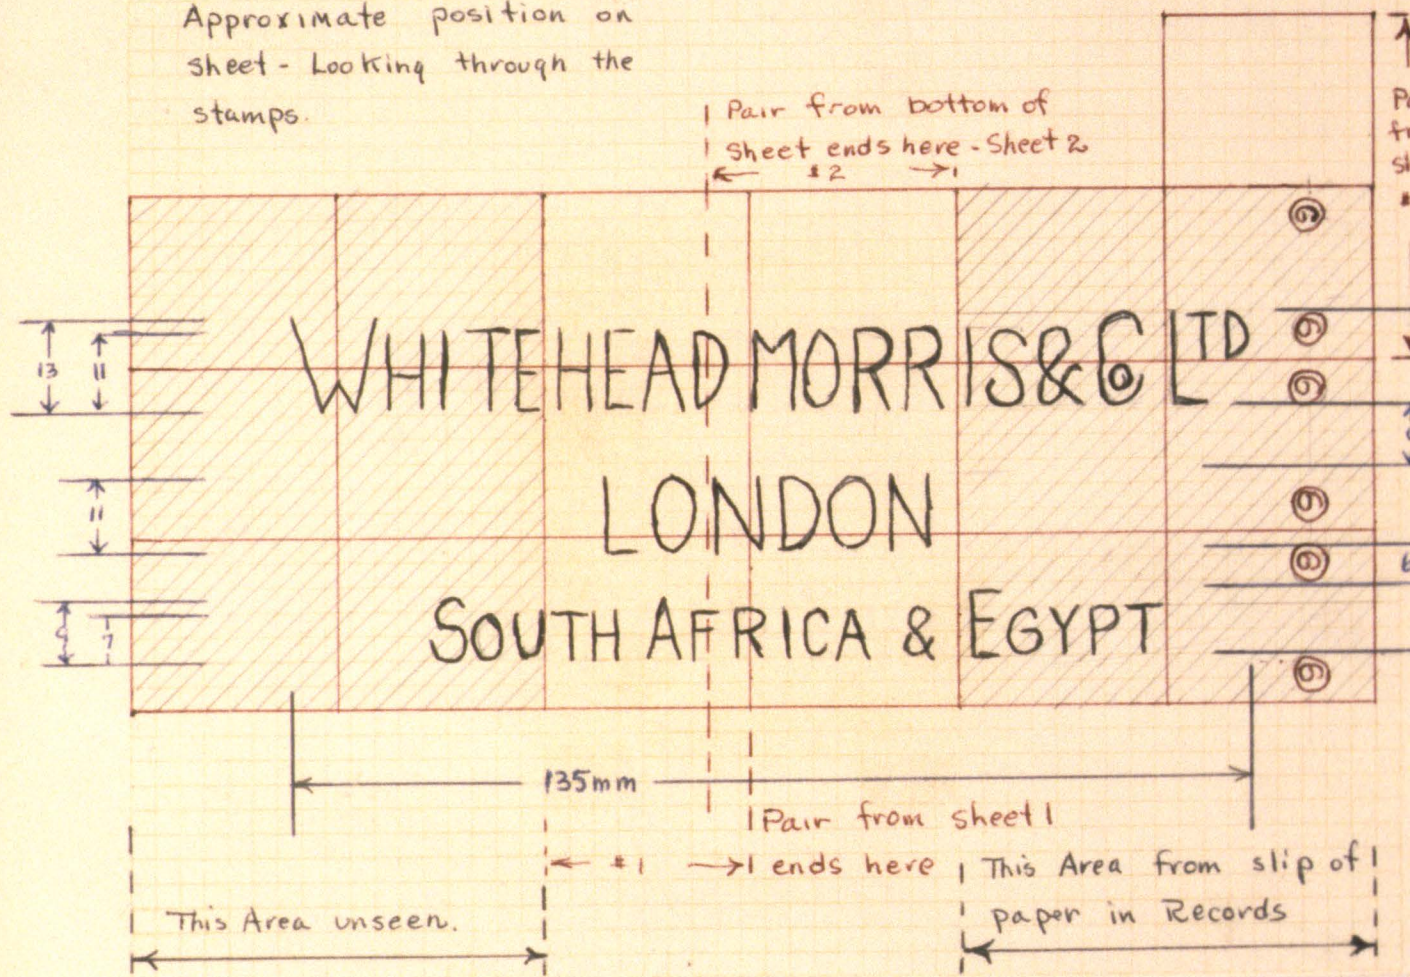 Approximate position on
sheet - Looking through the
stamps.
Pair from bottom of
sheet ends here - Sheet 2
#2
WHITEHEAD MORRIS & Co LTD
LONDON
SOUTH AFRICA & EGYPT
13
11
11
7
6
6
6
6
6
6
135mm
Pair from sheet 1
#1 ends here
This Area unseen.
This Area from slip of
paper in Records